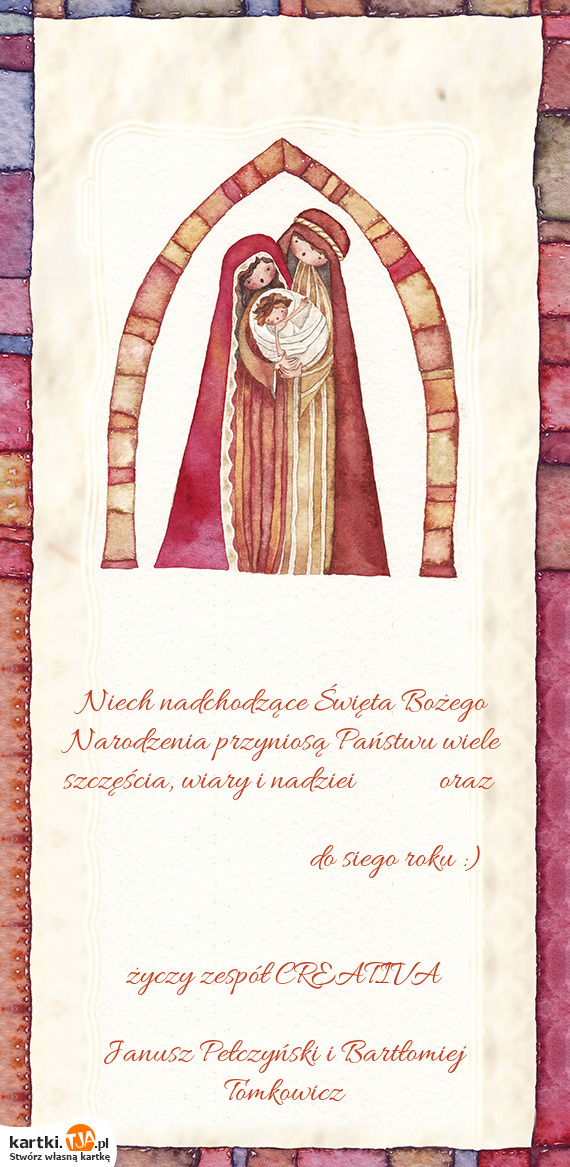 Niech nadchodzące Święta Bożego
Narodzenia przyniosą Państwu wiele
szczęścia, wiary i nadziei oraz
do siego roku :)
życzy zespół CREATIVA
Janusz Pełczyński i Bartłomiej
Tomkowicz
kartki.TJA.pl
Stwórz własną kartkę